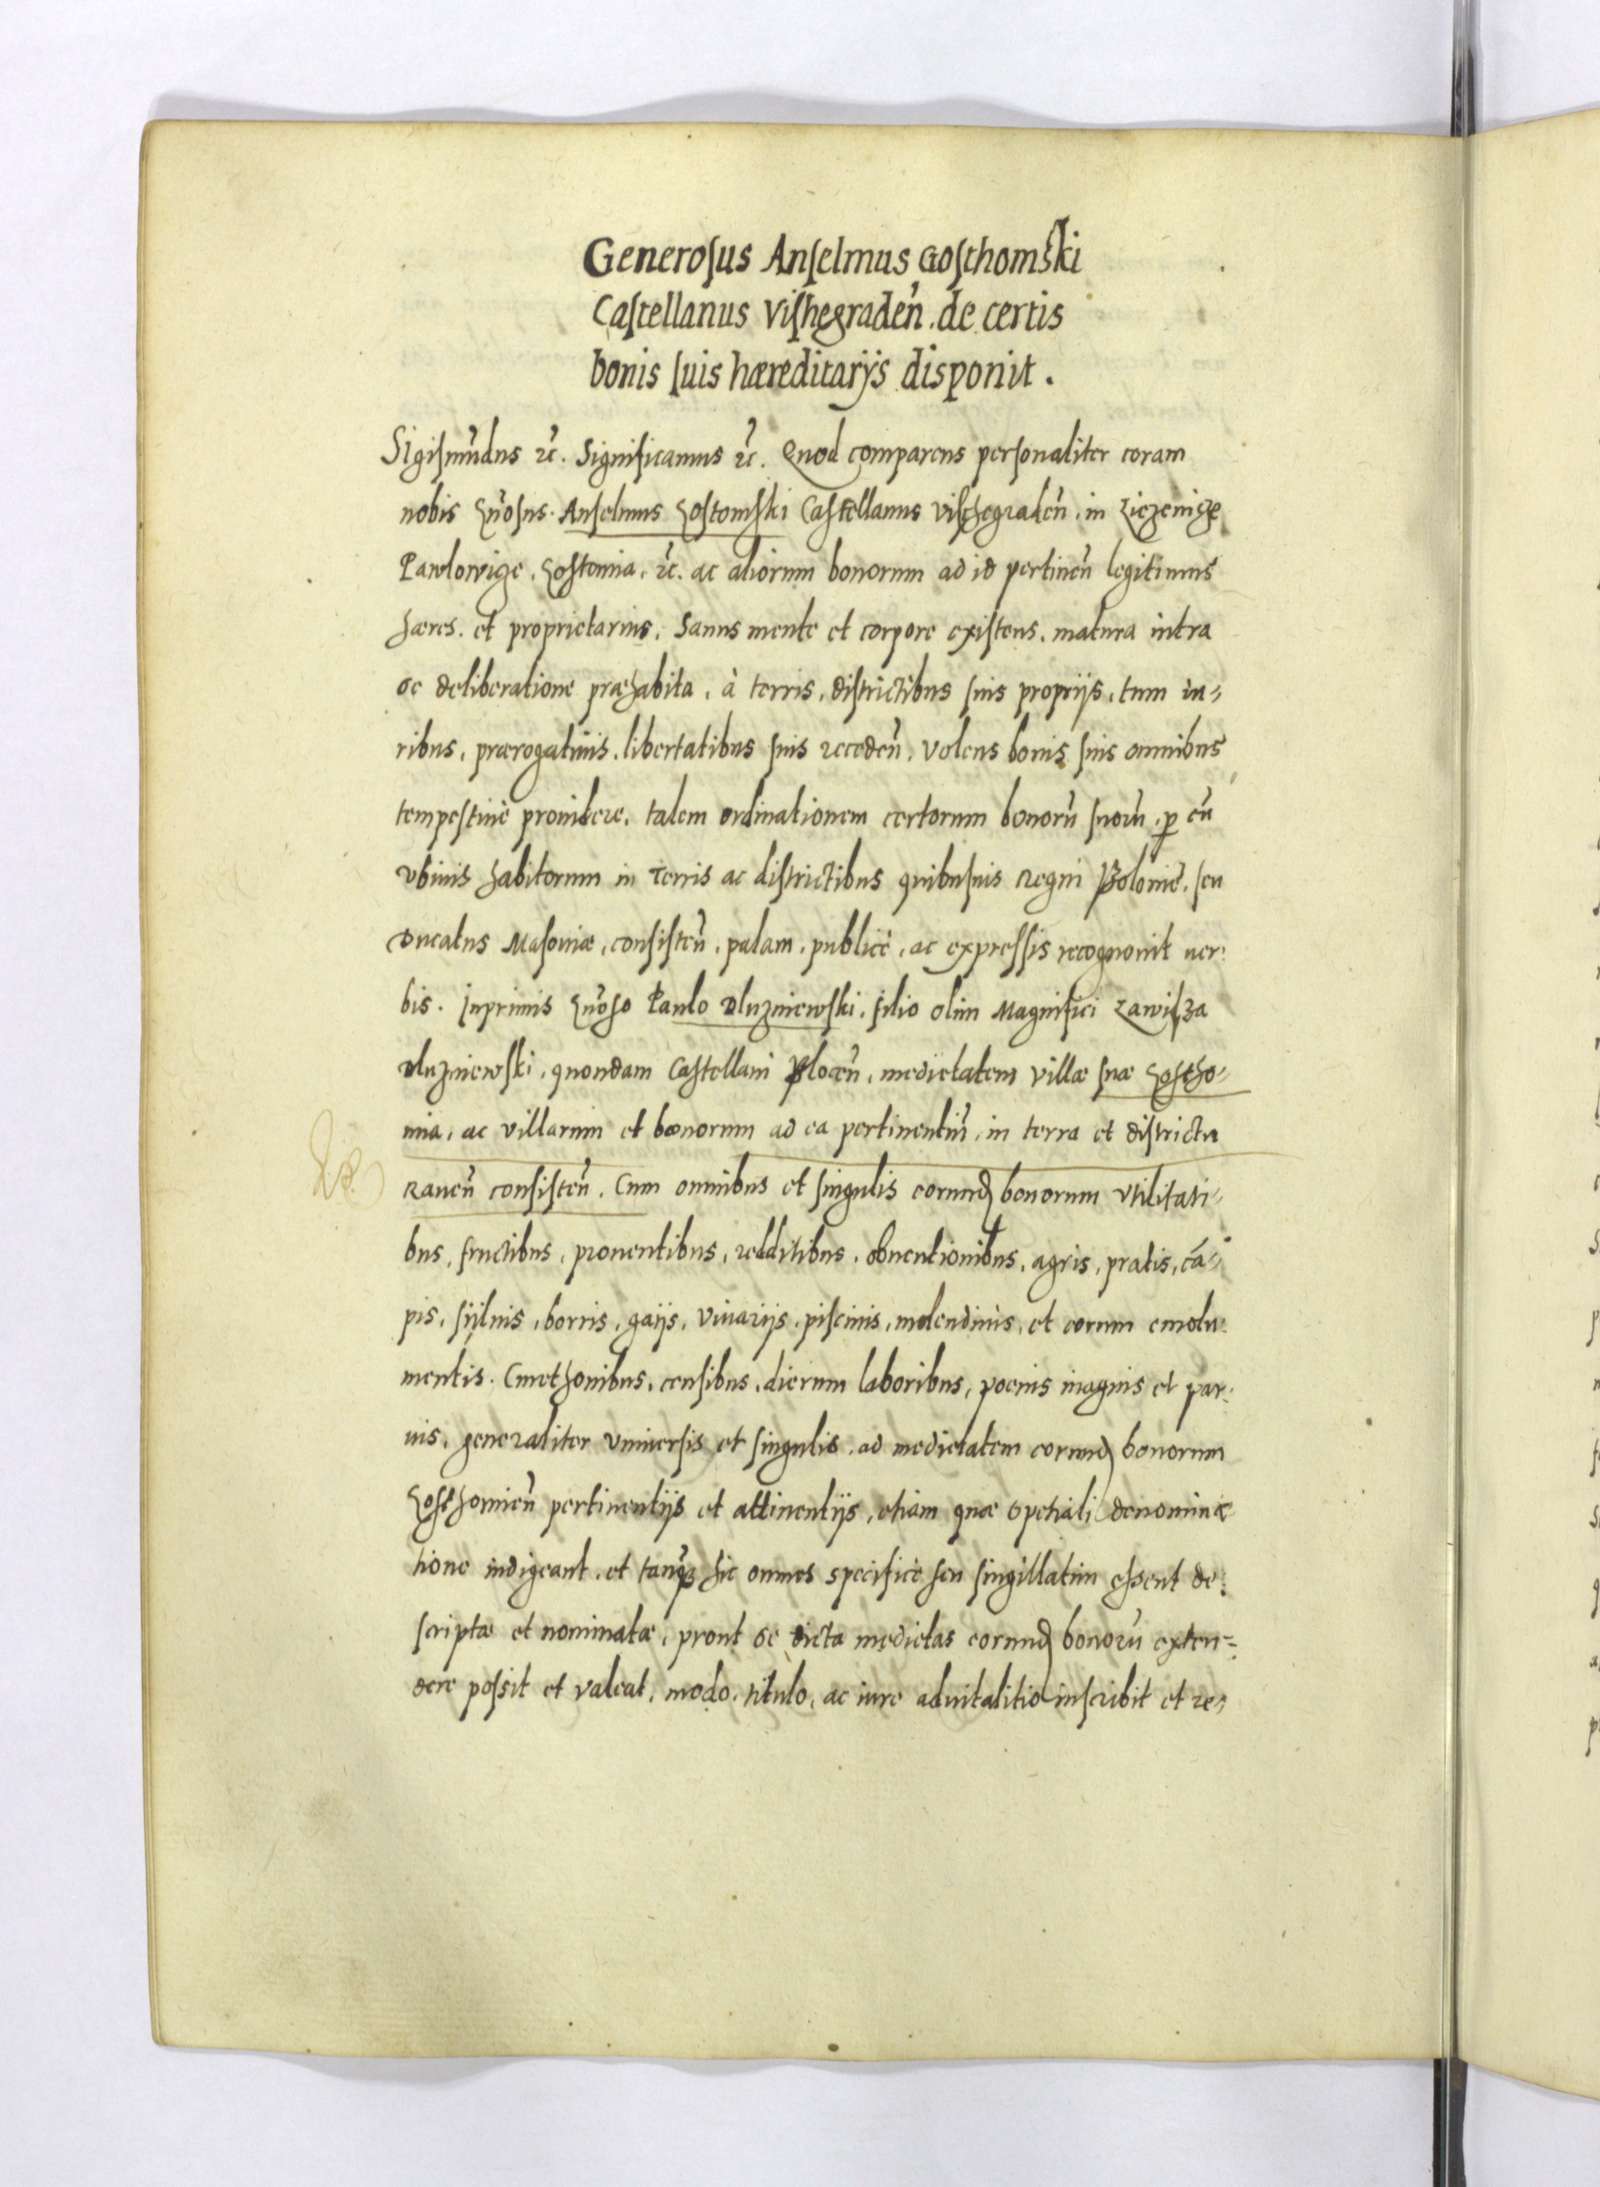 Generosus Anselmus Gosthomski
Castellanus Vishegradeñ. de certis
bonis suis hæreditarijs disponit.
Sigismũdus ꝛc̃. Significamus ꝛc̃. Quod comparens personaliter coram
nobis Gñosus. Anselmus Gostomski Castellanus Vischegradeñ. in Ziezenicze
Pawlowicze, Gostomia, ꝛc̃. ac aliorum bonorum ad id pertineñ legitimus
hæres. et proprietarius, Sanus mente et corpore existens, matura intra
se deliberatione præhabita, à terris, districtibus suis proprijs, tum iu-
ribus, prærogatiuis, libertatibus suis recedeñ, Volens bonis suis omnibus
tempestiuè prouidere, talem ordinationem certorum bonorũ suorũ, p eũ
vbiuis habitorum in Terris ac districtibus quibusuis Regni Polonie, seu
Ducatus Masouiæ, consisteñ, palam, publicè, ac expressis recognouit uer-
bis. Inprimis Gñoso Paulo Dluzniewski, filio olim Magnifici Zawisza
Dluzniewski, quondam Castellani Ploceñ, medietatem villæ suæ Gostho-
mia, ac villarum et bonorum ad ea pertinentiũ, in terra et districtu
Raueñ consisteñ. Cum omnibus et singulis eorund bonorum vtilitati-
bus, fructibus, prouentibus, redditibus, obuentionibus, agris, pratis, cã-
pis, syluis, borris, gaijs, viuarijs, piscinis, molendinis, et eorum emolu-
mentis. Cmethonibus, censibus, dierum laboribus, poenis magnis et par-
uis, generaliter vniuersis et singulis, ad medietatem eorund bonorum
Gosthomieñ pertinentijs et attinentijs, etiam quæ spetiali denomina
tione indigeant, et tanq̃ hic omnes specificè seu singillatim essent de-
scriptæ et nominatæ, prout se dicta medietas eorund bonorũ exten-
dere possit et valeat, modo, titulo, ac iure aduitalitio inscribit et re-